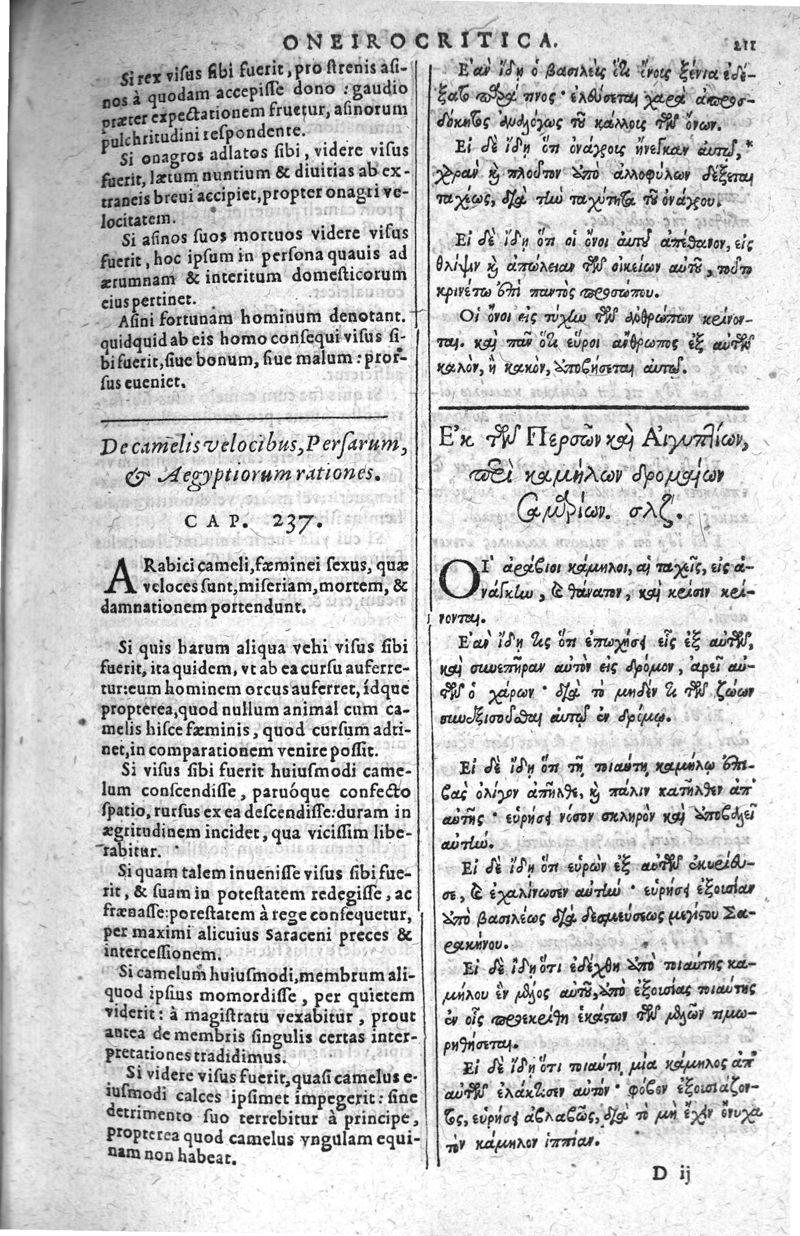 ONEIROCRITICA. 211
Si rex visus sibi fuerit, pro strenis asi-
nos à quodam accepisse dono: gaudio
præter expectationem fruetur, asinorum
pulchritudini respondente.
Si onagros adlatos sibi, videre visus
fuerit, lætum nuntium & divitias ab ex-
traneis brevi accipiet, propter onagri ve-
locitatem.
Si asinos suos mortuos videre visus
fuerit, hoc ipsum in persona quauis ad
ærumnam & interitum domesticorum
eius pertinet.
Asini fortunam hominum denotant.
quidquid ab eis homo consequi visus si-
bi fuerit, siue bonum, siue malum: pror-
sus eueniet.
De camelis velocibus, Persarum,
& Aegyptiorum rationes.
CAP. 237.
ARabici cameli, fæminei sexus, quæ
veloces sunt, miseriam, mortem, &
damnationem portendunt.
Si quis harum aliqua vehi visus sibi
fuerit, ita quidem, vt ab ea cursu auferre-
tur: eum hominem orcus auferret, idque
propterea, quod nullum animal cum ca-
melis hisce fæminis, quod cursum adti-
net, in comparationem venire possit.
Si visus sibi fuerit huiusmodi came-
lum conscendisse, paruóque confecto
spatio, rursus ex ea descendisse: duram in
ægritudinem incidet, qua vicissim libe-
rabitur.
Si quam talem inuenisse visus sibi fue-
rit, & suam in potestatem redegisse, ac
frænasse: potestatem à rege consequetur,
per maximi alicuius Saraceni preces &
intercessionem.
Si camelum huiusmodi, membrum ali-
quod ipsius momordisse, per quietem
viderit: à magistratu vexabitur, prout
antea de membris singulis certas inter-
pretationes tradidimus.
Si videre visus fuerit, quasi camelus e-
iusmodi calces ipsimet impegerit: sine
detrimento suo terrebitur à principe,
propterea quod camelus vngulam equi-
nam non habeat.
Ἐὰν ἴδῃ ὁ βασιλεὺς ὅτι ὄνοις ξένια ἐδέ-
ξατο παρά τινος· ἐλεύσεται χαρὰ ἀπροσ-
δόκητος ἀναλόγως τοῦ κάλλοις τῶν ὄνων.
Εἰ δὲ ἴδῃ ὅτι ὀνάγροις ἤνεγκαν αὐτῷ,*
χαρὰν καὶ πλοῦτον ὑπὸ ἀλλοφύλων δέξεται
ταχέως, διὰ τὴν ταχύτητα τοῦ ὀνάγρου.
Εἰ δὲ ἴδῃ ὅτι οἱ ὄνοι αὐτοῦ ἀπέθανον, εἰς
θλίψιν καὶ ἀπώλειαν τῶν οἰκείων αὐτοῦ, τοῦτο
κρινέτω ἐπὶ παντὸς προσώπου.
Οἱ ὄνοι εἰς τύχην τῶν ἀνθρώπων κρίνον-
ται. καὶ πᾶν ὅτι εὕροι ἄνθρωπος ἐξ αὐτῶν
καλὸν, ἢ κακὸν, ἀποβήσεται αὐτῷ.
Ἐκ τῶν Περσῶν καὶ Αἰγυπτίων,
περὶ καμήλων δρομαίων
Σαμβρίων. σλζ.
ΟΙ ἀράβιοι κάμηλοι, αἱ ταχεῖς, εἰς ἀ-
νάγκην, καὶ θάνατον, καὶ κρίσιν κρί-
νονται.
Ἐὰν ἴδῃ τις ὅτι ἐπωχήθη εἰς ἐξ αὐτῶν,
καὶ συνεπῆραν αὐτὸν εἰς δρόμον, ἀρεῖ αὐ-
τὸν ὁ χάρων· διὰ τὸ μηδέν τι τῶν ζώων
συνεξισοῦσθαι αὐτῷ ἐν δρόμῳ.
Εἰ δὲ ἴδῃ ὅτι τῇ τοιαύτῃ καμήλῳ ἐπι-
βὰς ὀλίγον ἀπῆλθε, καὶ πάλιν κατῆλθεν ἀπ'
αὐτῆς· εὑρήσει νόσον σκληρὸν καὶ ἀποβαλεῖ
αὐτήν.
Εἰ δὲ ἴδῃ ὅτι εὑρὼν ἐξ αὐτῶν ἐκυρίευ-
σε, καὶ ἐχαλίνωσεν αὐτήν· εὑρήσει ἐξουσίαν
ὑπὸ βασιλέως διὰ δεσμεύσεως μεγίστου Σα-
ρακήνου.
Εἰ δὲ ἴδῃ ὅτι ἐδέχθη ὑπὸ τοιαύτης κα-
μήλου ἐν μέλος αὐτοῦ, ὑπὸ ἐξουσίας τοιαύτης
ἐν οἷς προεκρίθη ἕκαστον τῶν μελῶν τιμω-
ρηθήσεται.
Εἰ δὲ ἴδῃ ὅτι τοιαύτη μία κάμηλος ἀπ'
αὐτῶν ἐλάκτισεν αὐτόν· φόβον ἐξουσιάζον-
τος, εὑρήσει ἀβλαβῶς, διὰ τὸ μὴ ἔχειν ὄνυχα
τὸν κάμηλον ἱππίαν.
D ij